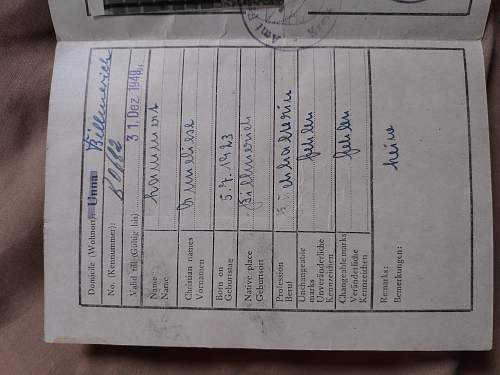 Amt
Domicile (Wohnort) Unna Billmerich
No. (Kennummer):
Valid till (Gültig bis) 31. Dez. 1948
Name
Name
Christian names
Vornamen
Anneliese
Born on
Geburtstag
5.7.1923
Native place
Geburtsort
Billmerich
Profession
Beruf
Unchangeable
marks
Unveränderliche
Kennzeichen
fehlen
Changeable marks
Veränderliche
Kennzeichen
fehlen
Remarks:
Bemerkungen:
keine